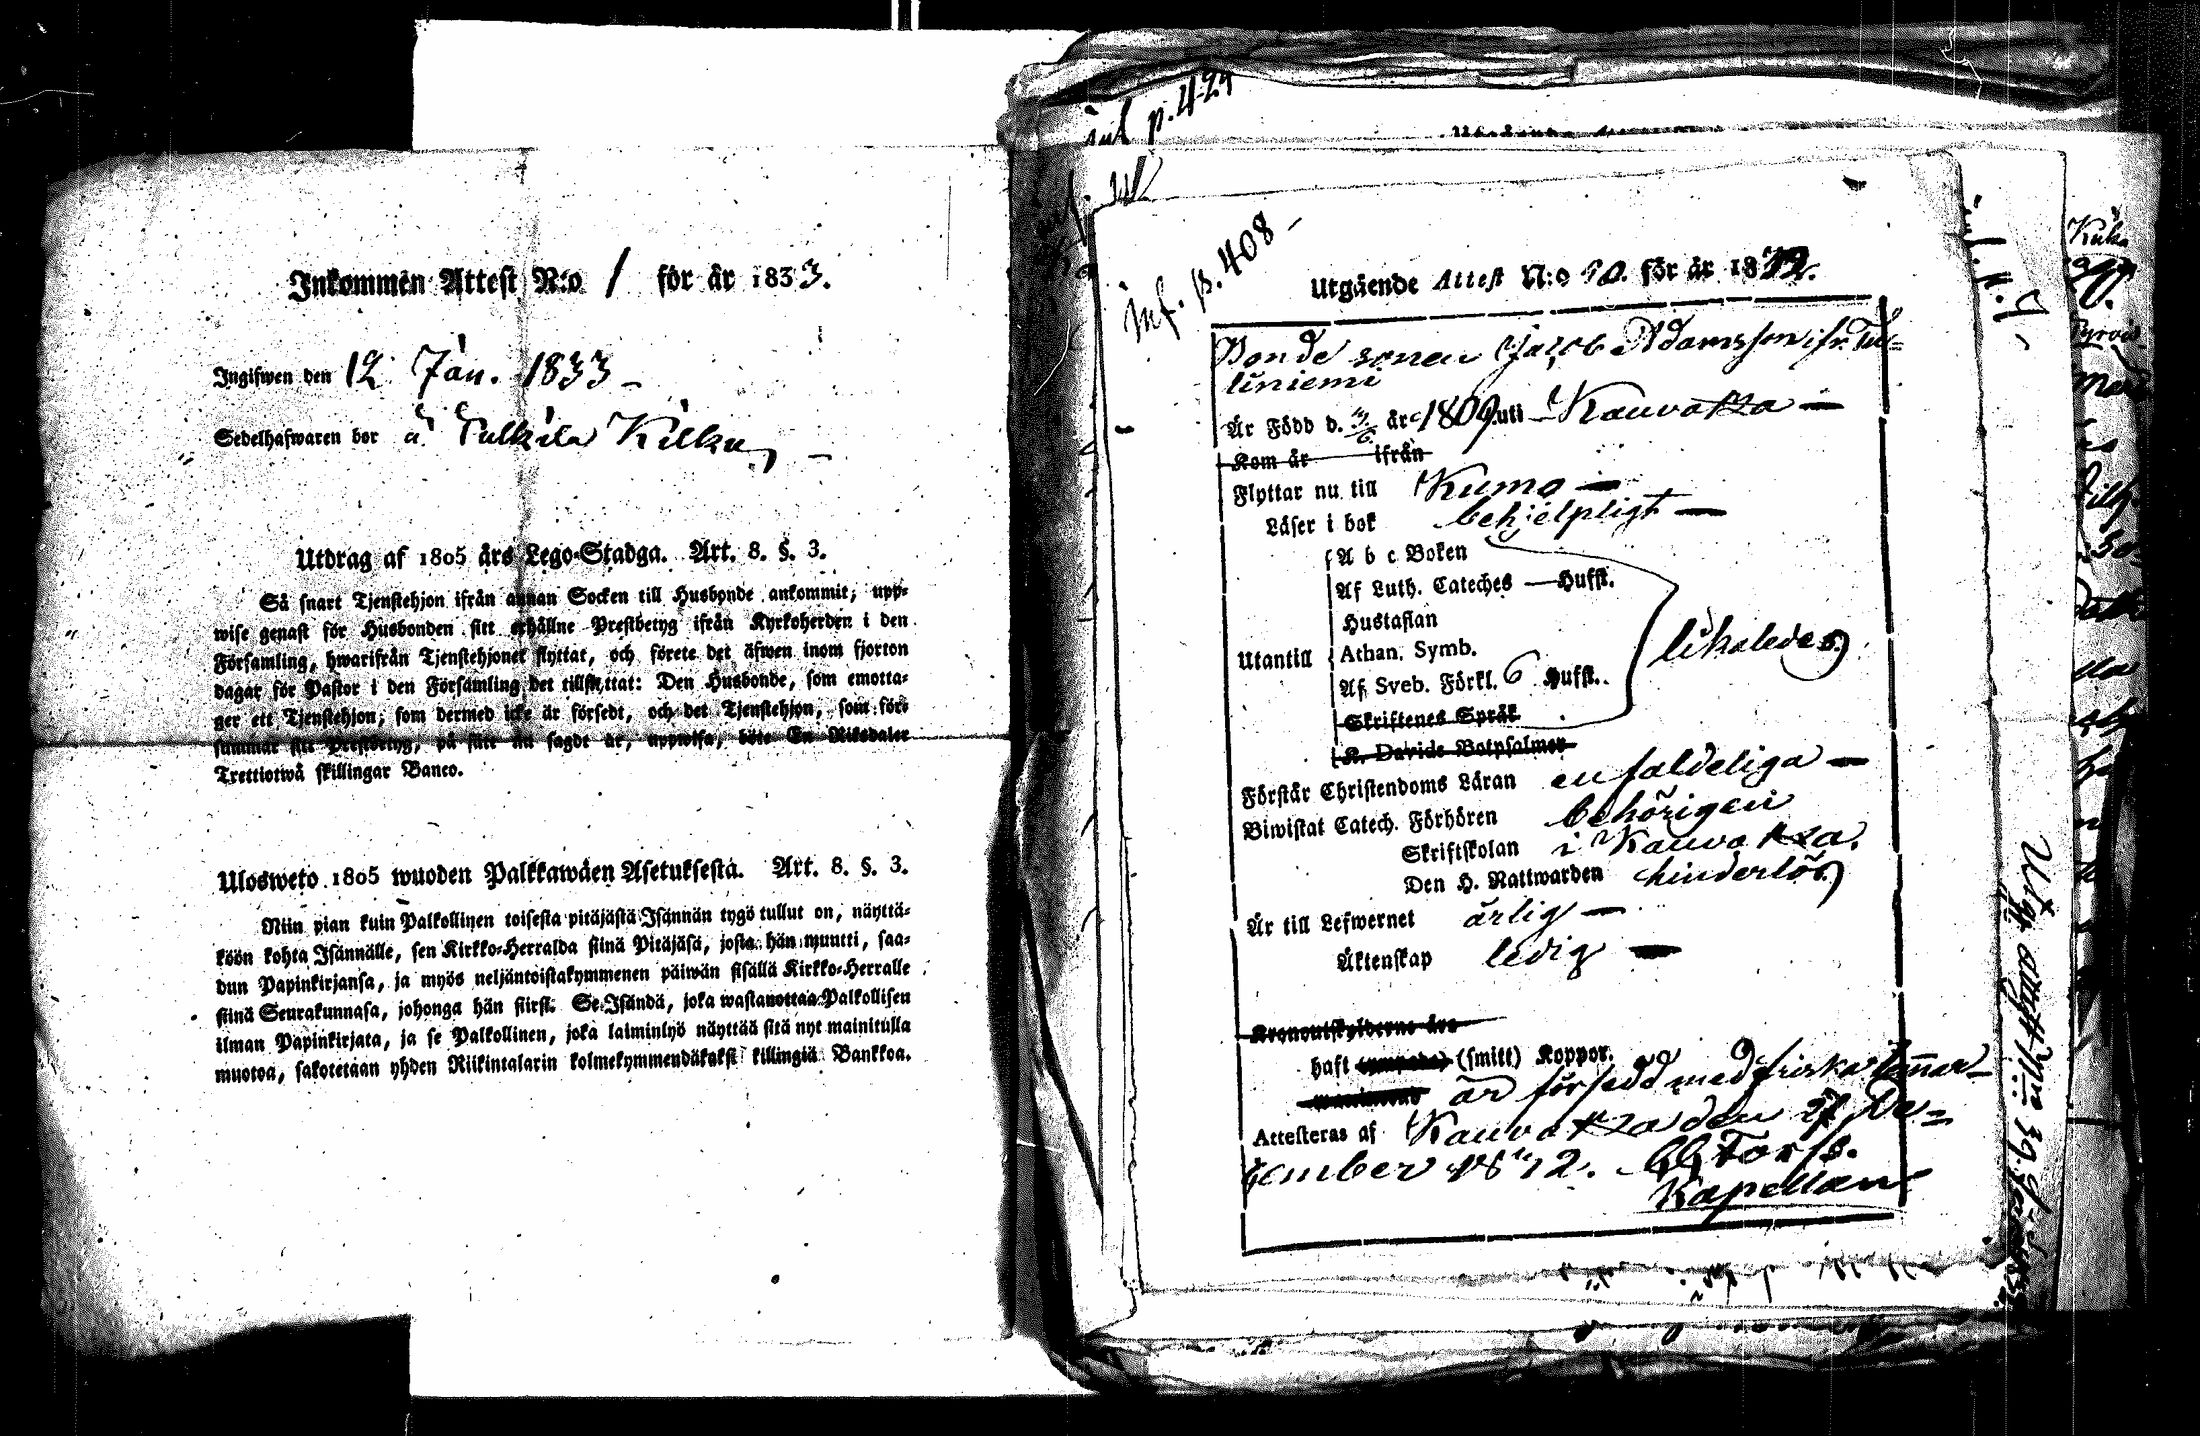 Inkommen Attest N:o 1 för år 1833.
Ingifwen den 12 Jan. 1833 –
Sedelhafwaren bor å Sulkila Kilku –
Utdrag af 1805 års Lego-Stadga. Art. 8. §. 3.
Så snart Tjenstehjon ifrån annan Socken till Husbonde ankommit, upp-
wise genast för Husbonden sitt erhållne Prestbetyg ifrån Kyrkoherden i den
Församling, hwarifrån Tjenstehjonet flyttat, och förete det äfwen inom fjorton
dagar för Pastor i den Församling det tillflyttat: Den Husbonde, som emotta-
ger ett Tjenstehjon, som dermed icke är försedt, och det Tjenstehjon, som för-
summar sitt Prestbetyg, på sätt nu sagdt är, uppwisa, böte En Riksdaler
Trettiotwå skillingar Banco.
Ulosweto 1805 wuoden Palkkawäen Asetuksesta. Art. 8. §. 3.
Niin pian kuin Palkollinen toisesta pitäjästä Isännän tygö tullut on, näyttä-
köön kohta Isännälle, sen Kirkko-Herralda siinä Pitäjäsä, josta hän muutti, saa-
dun Papinkirjansa, ja myös neljäntoistakymmenen päiwän sisällä Kirkko-Herralle
siinä Seurakunnasa, johonga hän siirsi. Se Isändä, joka wastanottaa Palkollisen
ilman Papinkirjata, ja se Palkollinen, joka laiminlyö näyttää sitä nyt mainitulla
muotoa, sakotetaan yhden Riikintalarin kolmekymmendäkaksi killingiä Bankkoa.
inf. p. 429
inf. p. 408 –
Utgående Attest N:o 90. för år 1832.
Bonde sonen Jacob Adamsson ifr. Tu-
liniemi
Är Född d. år 1809 uti Kauvatza –
Kom år ifrån
Flyttar nu till Kumo –
Läser i bok behjelpligt –
A b c Boken
Af Luth. Cateches – Hufst.
Hustaflan
Utantill Athan. Symb. likaledes
Af Sveb. Förkl. 6 Hufst.
Skriftenes Språk
K. Davids Botpsalmer
Förstår Christendoms Läran enfaldeliga –
Biwistat Catech. Förhören behörigen
Skriftskolan i Kauvatza.
Den H. Nattwarden hinderlös
Är till Lefwernet ärlig –
Äktenskap ledig –
Kronoutskylderne års
haft (smitt) Koppor.
är försedd med friska lemmar
Attesteras af Kauvatza den 27 De-
cember 1832. Torss.
Kapellan